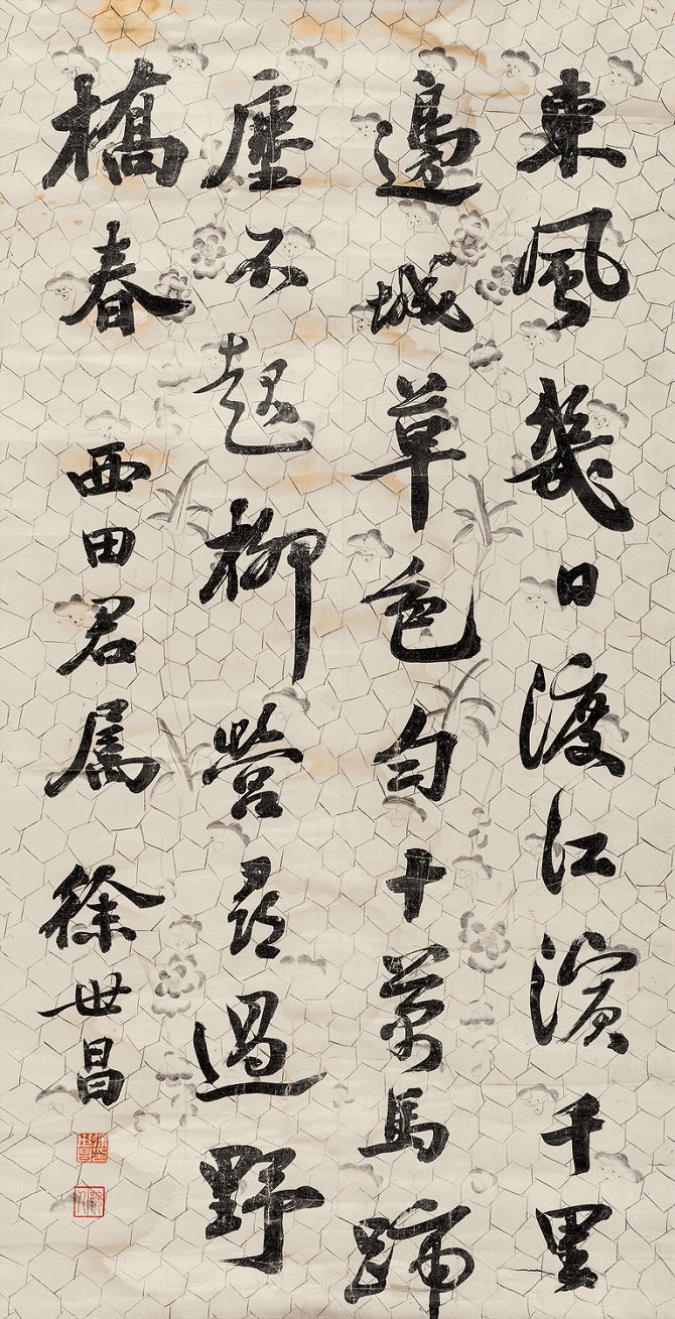 東風幾日渡江濱千里
邊城草色勻十萬馬蹄
塵不起柳營尋過野
橋春 西田君属 徐世昌